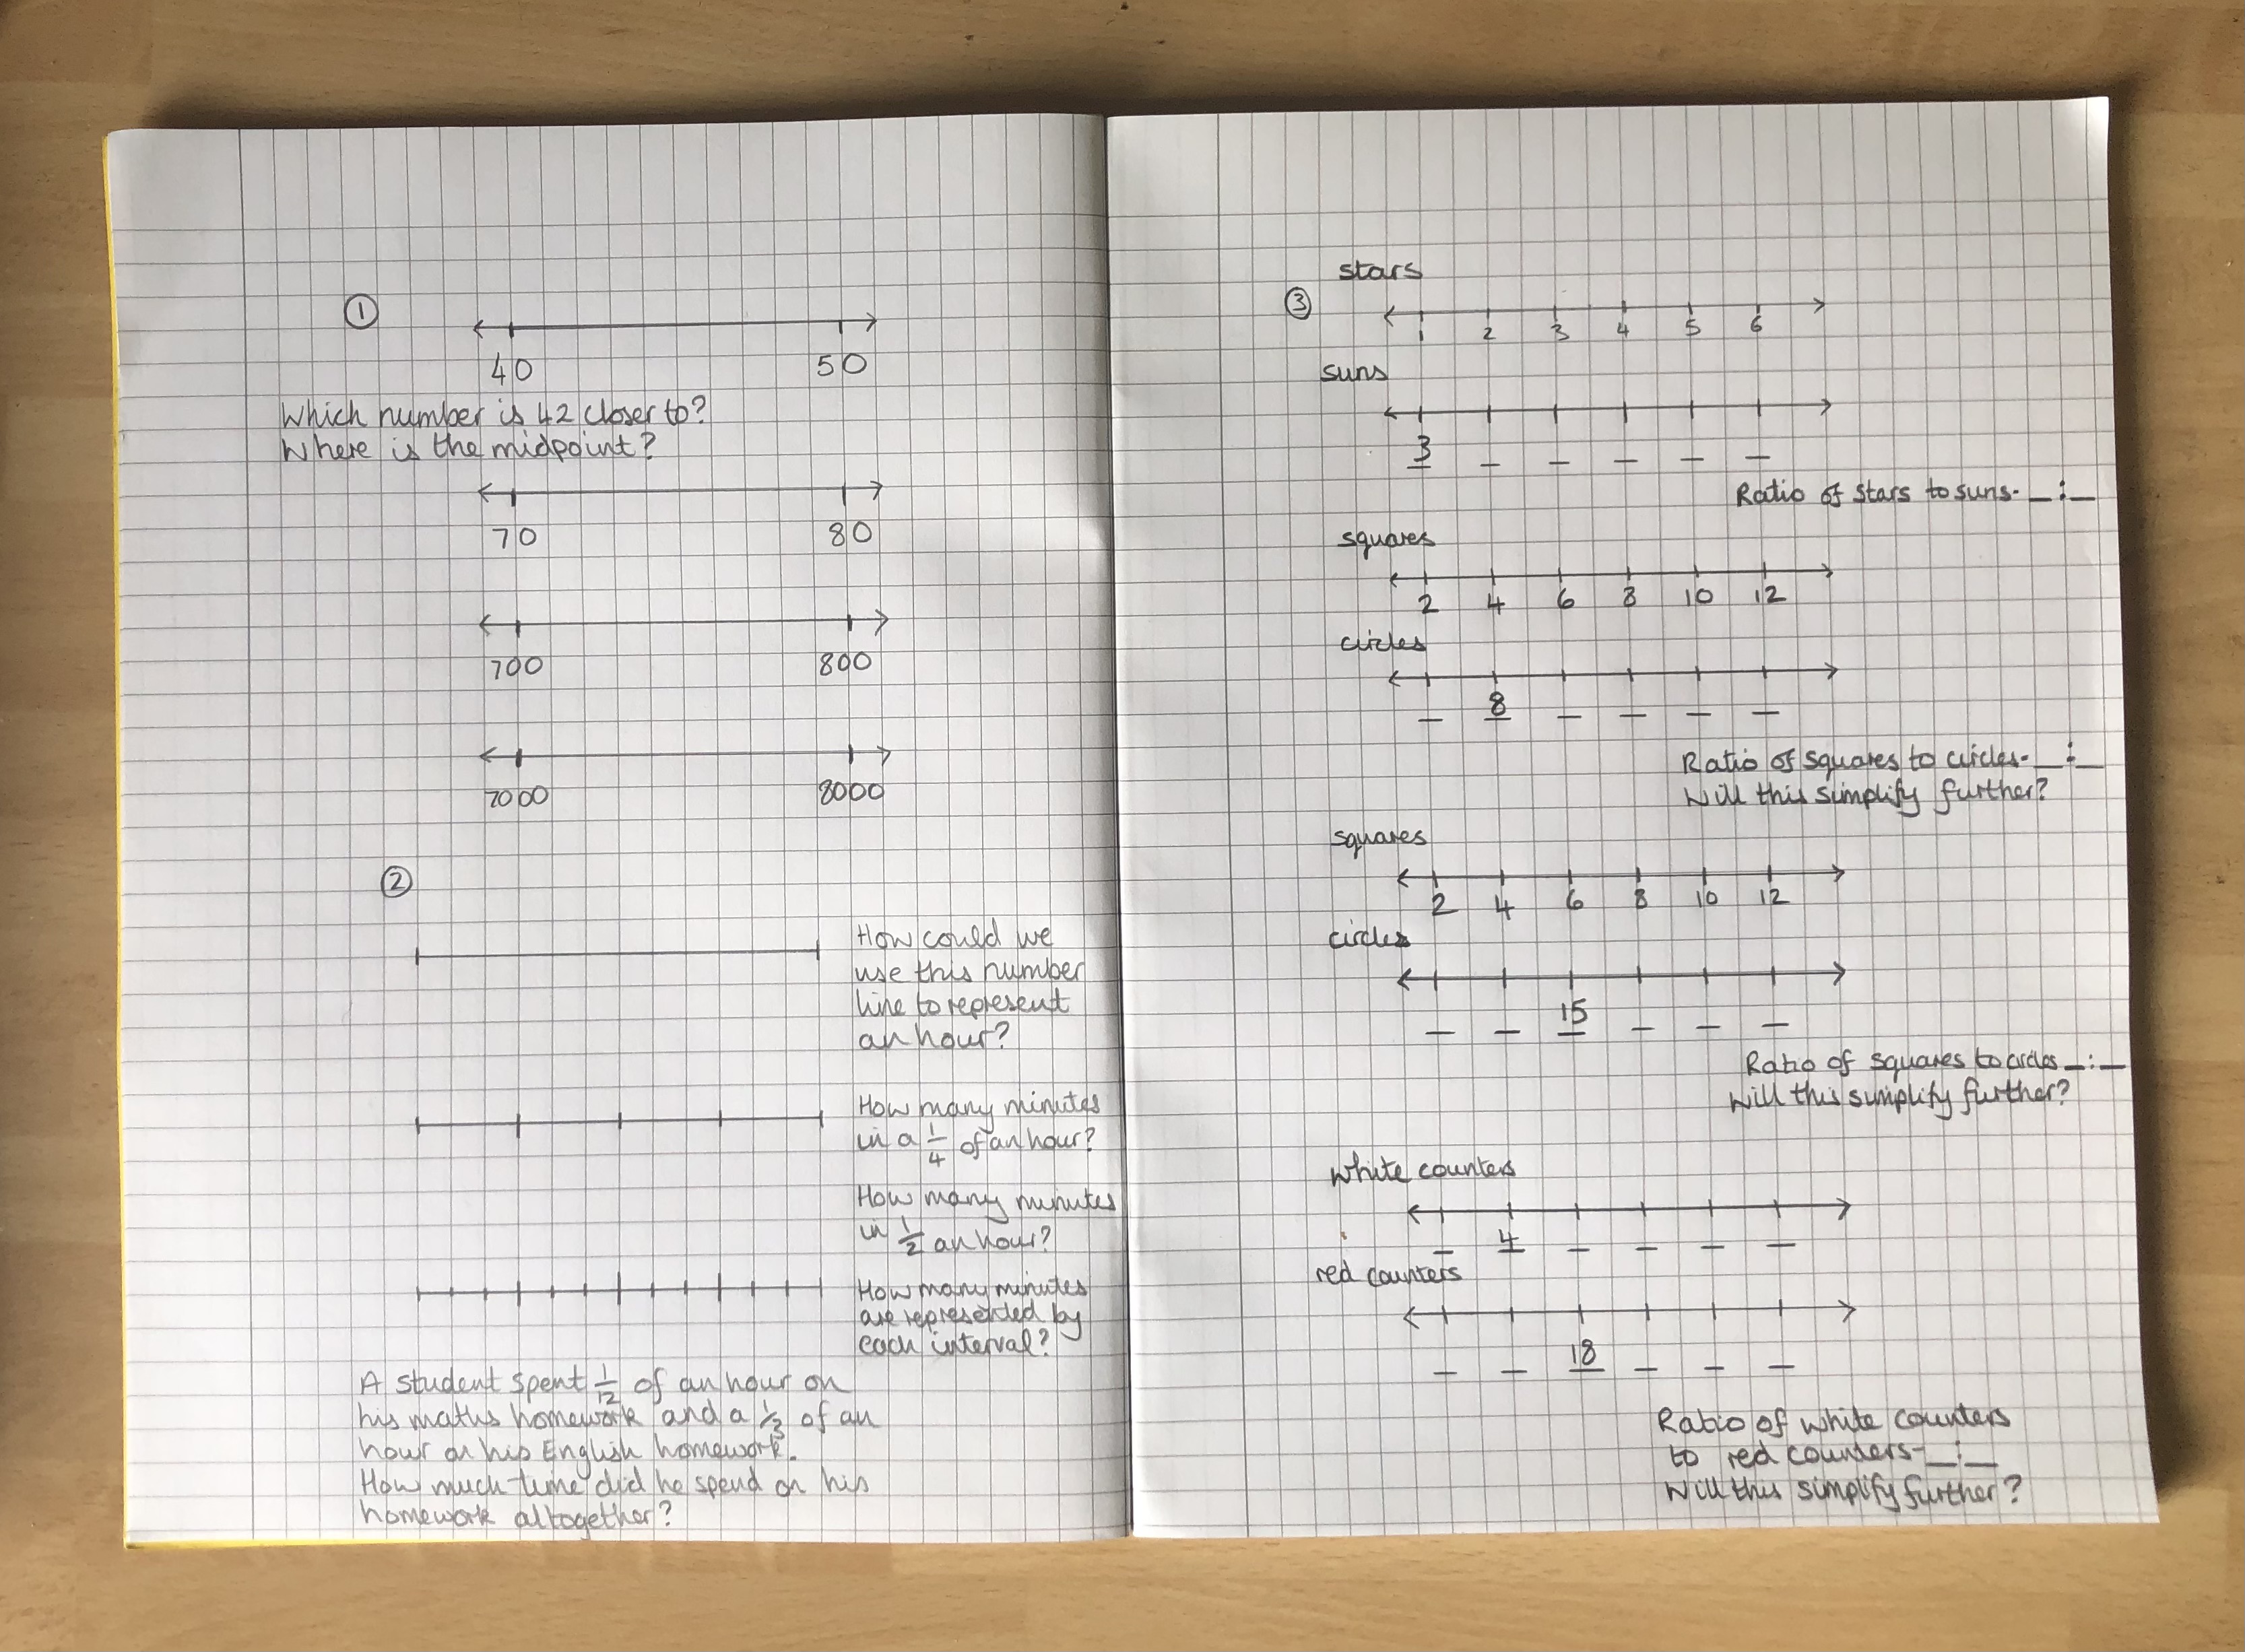 ①
40 50
Which number is 42 closer to?
Where is the midpoint?
70 80
700 800
7000 8000
②
How could we
use this number
line to represent
an hour?
How many minutes
in a 1/4 of an hour?
How many minutes
in 1/2 an hour?
How many minutes
are represented by
each interval?
A student spent 1/12 of an hour on
his maths homework and a 1/3 of an
hour on his English homework.
How much time did he spend on his
homework altogether?
③
stars
1 2 3 4 5 6
suns
3 _ _ _ _ _
Ratio of stars to suns- _:_
squares
2 4 6 8 10 12
circles
_ 8 _ _ _ _
Ratio of squares to circles- _:_
Will this simplify further?
squares
2 4 6 8 10 12
circles
_ _ 15 _ _ _
Ratio of squares to circles _:_
Will this simplify further?
white counters
_ 4 _ _ _ _
red counters
_ _ 18 _ _ _
Ratio of white counters
to red counters- _:_
Will this simplify further?